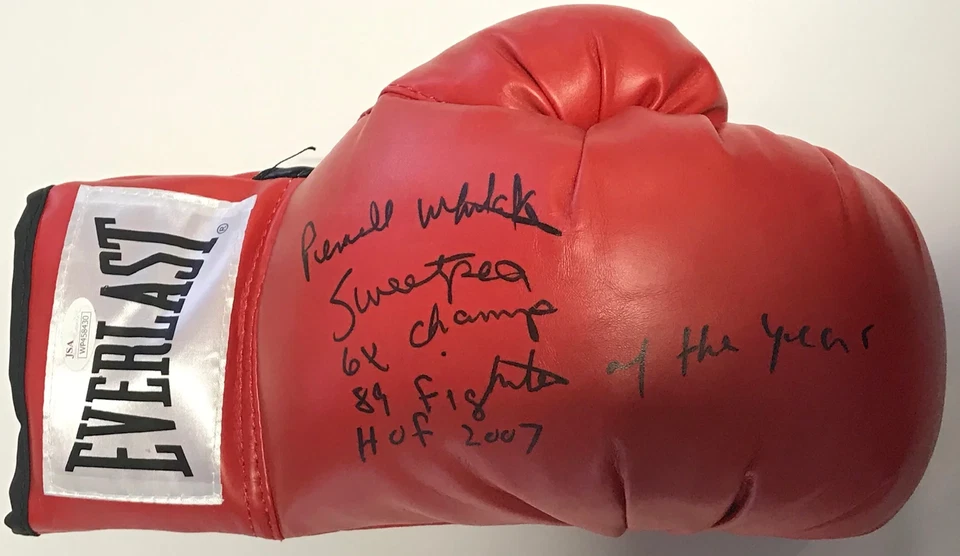 EVERLAST®
JSA
WP458430
Pernell Whitaker
Sweetpea
6X champ
89 Fighter of the Year
HOF 2007